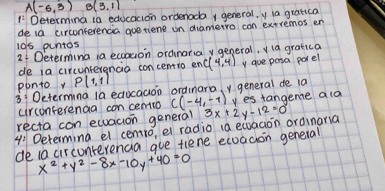 A(-6,3) B(3,1)
1: Determina la educación ordenada y general, y la grafica
de la circunferencia que tiene un diametro con extremos en
los puntos
2: Determina la ecuación ordinaria y general, y la grafica
de la circunferencia con centro en C(4,4) y que pasa por el
punto P(1,1)
3: Determina la educación ordinara y general de la
circunferencia con centro C(-4,-1) y es tangente a la
recta con ecuación general 3x+2y-12=0
4: Determina el centro, el radio la ecuación ordinaria
de la circunferencia que tiene ecuación general
x²+y²-8x-10y+40=0